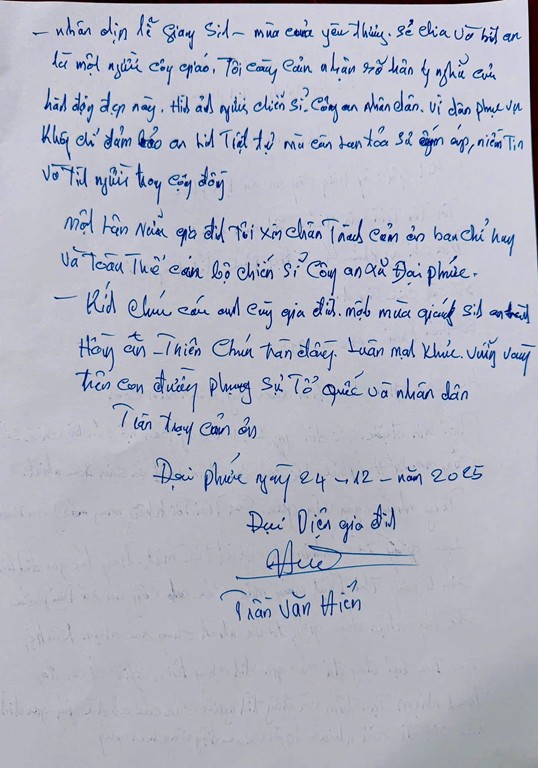 - nhân dịp lễ Giáng Sinh - mùa của yêu thương. sẻ chia và bình an
là một người công giáo, Tôi càng cảm nhận rõ hơn ý nghĩa của
hành động đẹp này. Hình ảnh người chiến sĩ. Công an nhân dân. Vì dân phục vụ
Không chỉ đảm bảo an ninh Trật tự mà còn lan tỏa sự ấm áp, niềm Tin
và Tình người trong cộng đồng
một lần Nữa gia đình Tôi xin chân Thành cảm ơn ban chỉ huy
và toàn Thể cán bộ chiến sĩ Công an xã Đại phước.
- Kính chúc các anh cùng gia đình. một mùa giáng sinh an lành
Hồng ân Thiên Chúa tràn đầy. Luôn mạnh khỏe. vững vàng
trên con đường phụng sự Tổ Quốc và nhân dân
Trân trọng cảm ơn
Đại phước ngày 24 - 12 - năm 2025
Đại Diện gia đình
Trần Văn Hiến